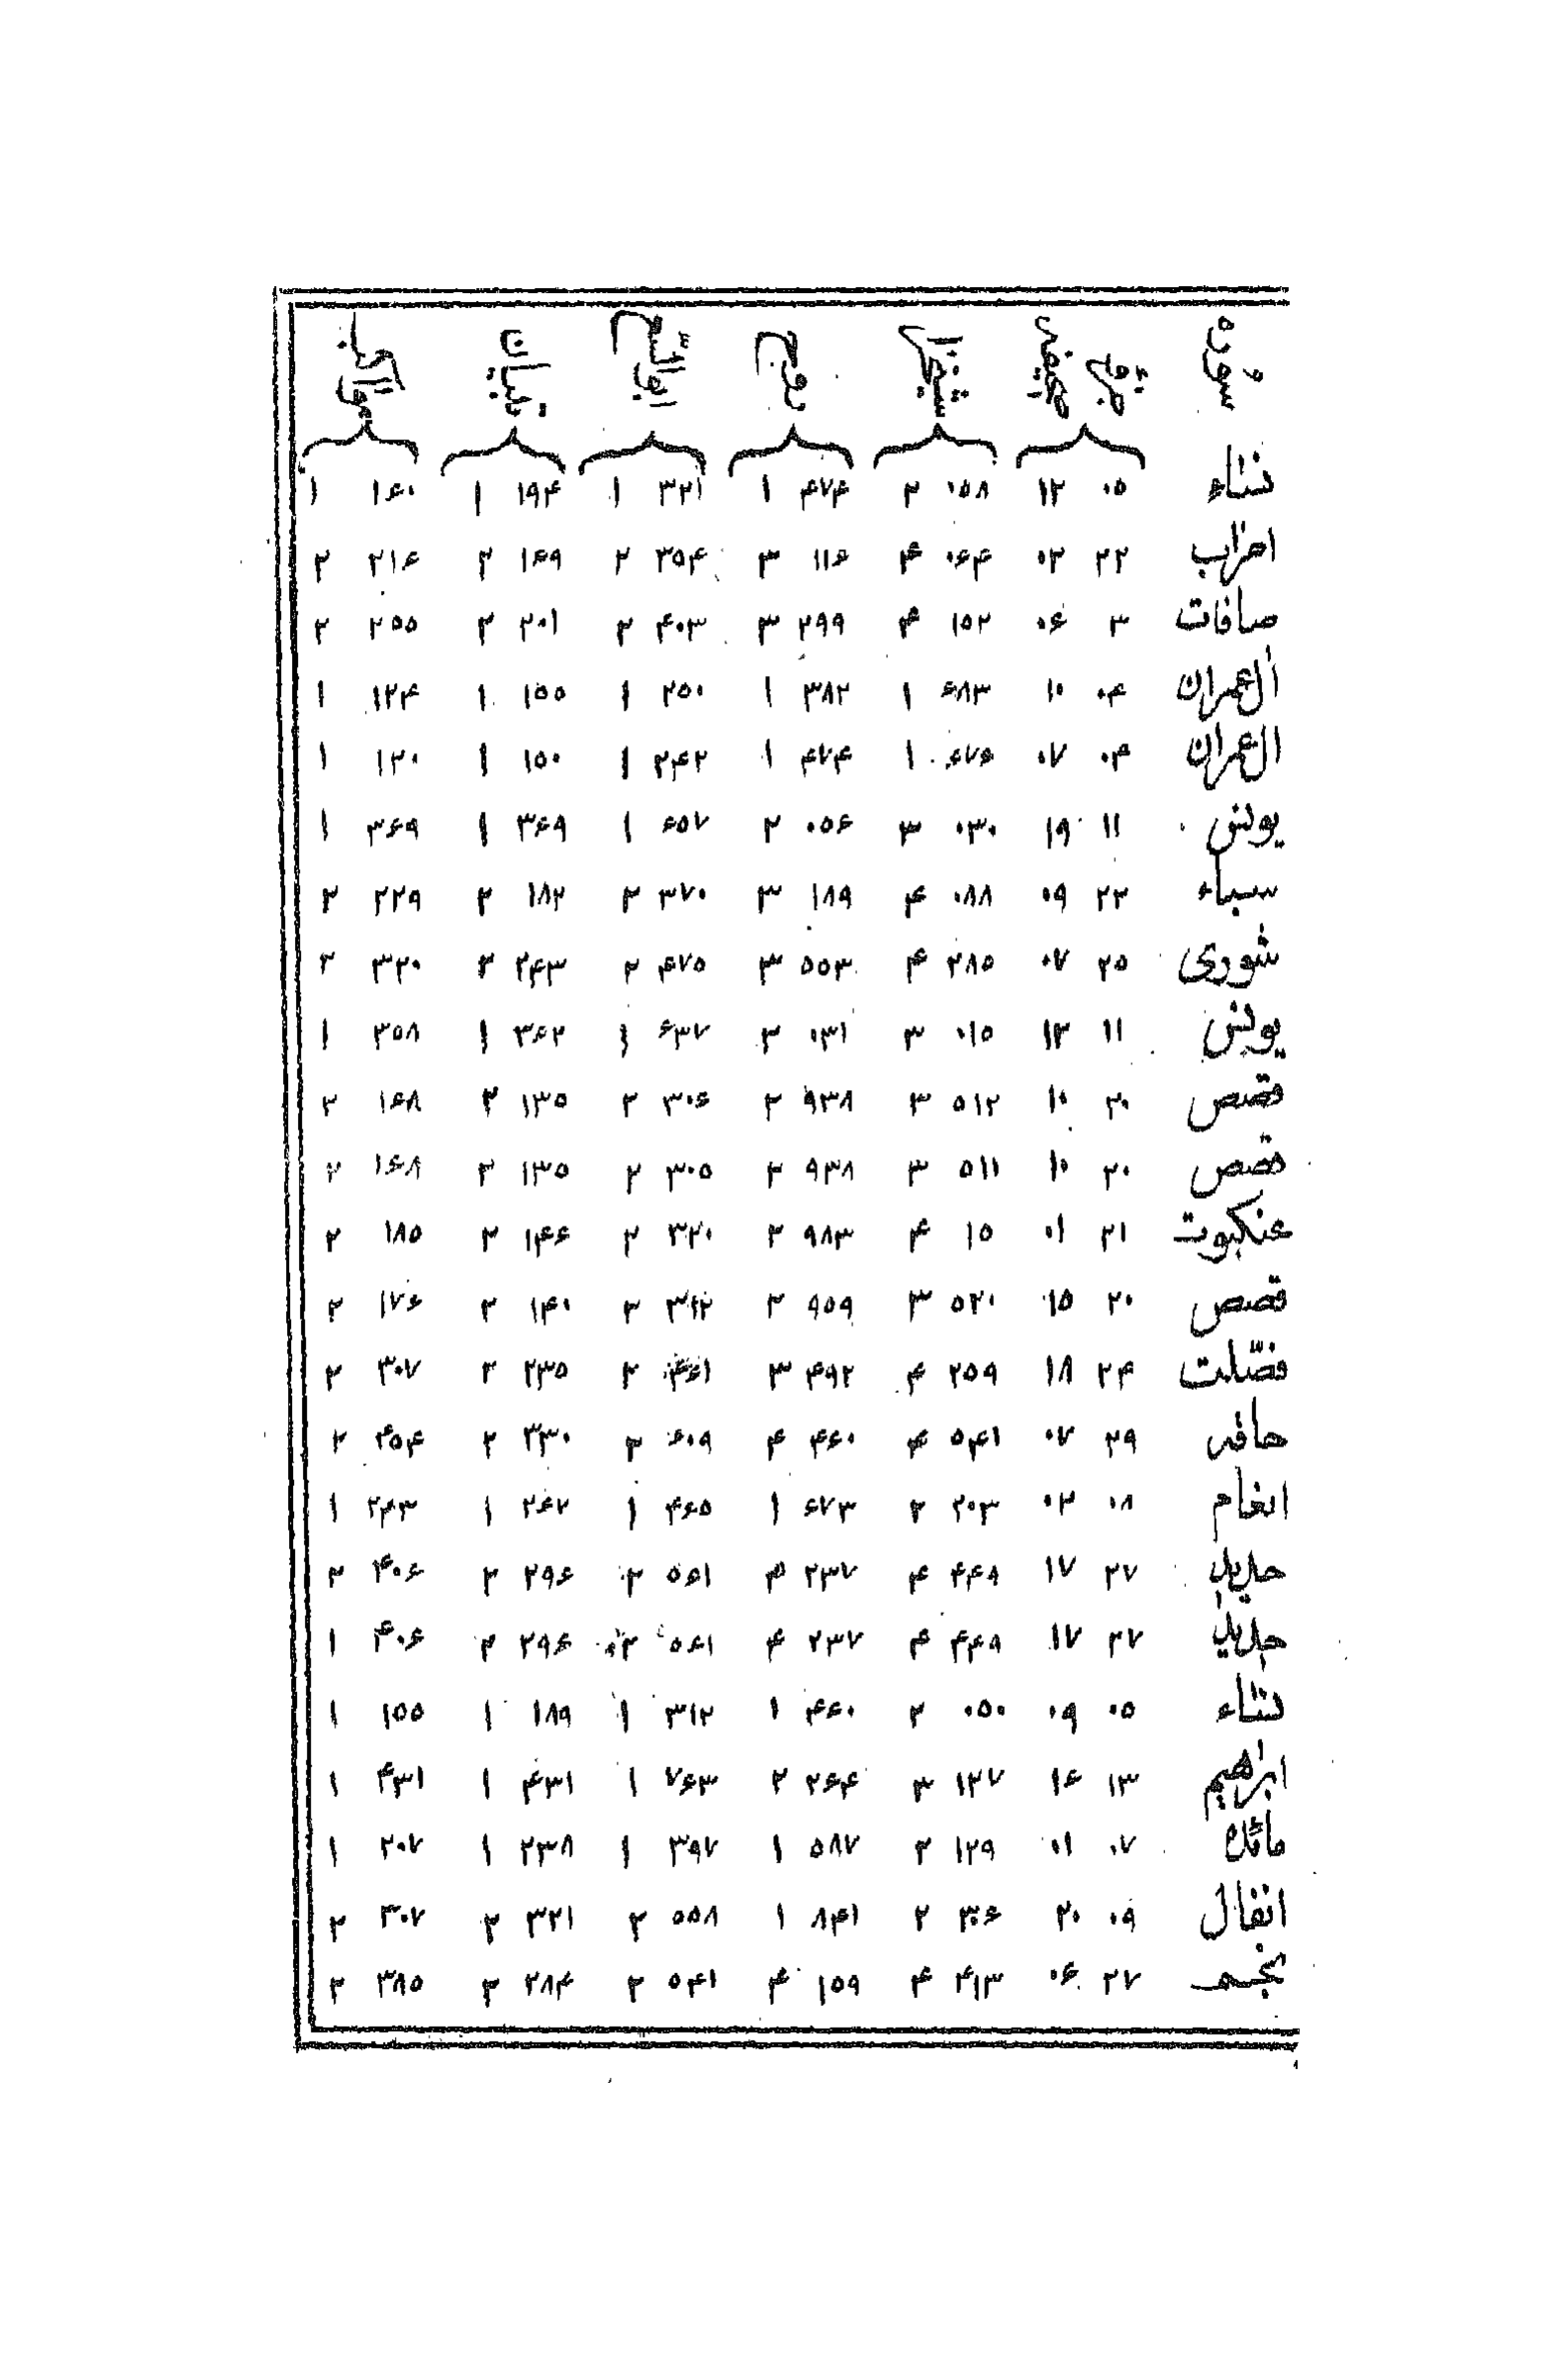 سوره جزو صفحه شیخزاده روح ابوالسعود تبیان مواکب
نساء ۰۵ ۱۲ ۰۵۸ ۲ ۴۷۴ ۱ ۳۲۱ ۱ ۱۹۴ ۱ ۱۶۰ ۱
احزاب ۲۲ ۰۲ ۰۶۴ ۴ ۱۱۶ ۳ ۳۵۴ ۲ ۱۶۹ ۲ ۲۱۶ ۲
صافات ۳ ۰۶ ۱۵۲ ۴ ۲۹۹ ۳ ۴۰۳ ۲ ۲۰۱ ۲ ۲۵۵ ۲
ال عمران ۰۴ ۱۰ ۶۸۳ ۱ ۳۸۲ ۱ ۲۵۰ ۱ ۱۵۵ ۱ ۱۲۴ ۱
ال عمران ۰۴ ۰۷ ۶۷۶ ۱ ۴۷۴ ۱ ۲۴۲ ۱ ۱۵۰ ۱ ۱۲۰ ۱
یونس ۱۱ ۱۹ ۰۳۰ ۳ ۰۵۶ ۲ ۶۵۷ ۱ ۳۶۹ ۱ ۳۶۹ ۱
سباء ۲۲ ۰۹ ۰۸۸ ۴ ۱۸۹ ۳ ۳۷۰ ۲ ۱۸۲ ۲ ۲۲۹ ۲
شوری ۲۵ ۰۷ ۲۸۵ ۴ ۵۵۳ ۳ ۴۷۵ ۲ ۲۴۳ ۲ ۳۲۰ ۲
یونس ۱۱ ۱۲ ۰۱۵ ۳ ۰۳۱ ۲ ۶۳۷ ۱ ۳۶۲ ۱ ۳۵۸ ۱
قصص ۲۰ ۱۰ ۵۱۲ ۳ ۹۳۸ ۲ ۳۰۶ ۲ ۱۳۵ ۲ ۱۶۸ ۲
قصص ۲۰ ۱۰ ۵۱۱ ۳ ۹۳۸ ۲ ۳۰۵ ۲ ۱۳۵ ۲ ۱۶۸ ۲
عنکبوت ۲۱ ۰۱ ۱۵ ۴ ۹۸۳ ۲ ۳۲۰ ۲ ۱۴۶ ۲ ۱۸۵ ۲
قصص ۲۰ ۱۵ ۵۲۰ ۳ ۹۵۹ ۲ ۳۱۲ ۲ ۱۴۰ ۲ ۱۷۶ ۲
فصّلت ۲۴ ۱۸ ۲۵۹ ۴ ۴۹۲ ۳ ۴۶۱ ۲ ۲۳۵ ۲ ۳۰۷ ۲
حاقه ۲۹ ۰۷ ۵۴۱ ۴ ۴۶۰ ۴ ۶۰۹ ۲ ۳۳۰ ۲ ۴۵۴ ۲
انعام ۰۸ ۰۲ ۲۰۳ ۲ ۶۷۳ ۱ ۴۶۵ ۱ ۲۶۲ ۱ ۲۴۳ ۱
حدید ۲۷ ۱۷ ۴۴۹ ۴ ۲۳۷ ۴ ۵۶۱ ۲ ۲۹۶ ۲ ۴۰۶ ۲
حدید ۲۷ ۱۷ ۴۴۹ ۴ ۲۳۷ ۴ ۵۶۱ ۲ ۲۹۶ ۲ ۴۰۶ ۱
نساء ۰۵ ۰۹ ۰۵۰ ۲ ۴۶۰ ۱ ۳۱۲ ۱ ۱۸۹ ۱ ۱۵۵ ۱
ابراهیم ۱۳ ۱۶ ۱۲۷ ۳ ۲۶۴ ۲ ۷۶۳ ۱ ۴۳۱ ۱ ۴۳۱ ۱
مائده ۰۷ ۰۱ ۱۲۹ ۲ ۵۸۷ ۱ ۳۹۷ ۱ ۲۳۸ ۱ ۲۰۷ ۱
انفال ۰۹ ۲۰ ۳۰۶ ۲ ۸۴۱ ۱ ۵۵۸ ۲ ۳۲۱ ۲ ۳۰۷ ۲
نجم ۲۷ ۰۶ ۴۱۳ ۴ ۱۵۹ ۴ ۵۴۱ ۲ ۲۸۴ ۲ ۳۸۵ ۲